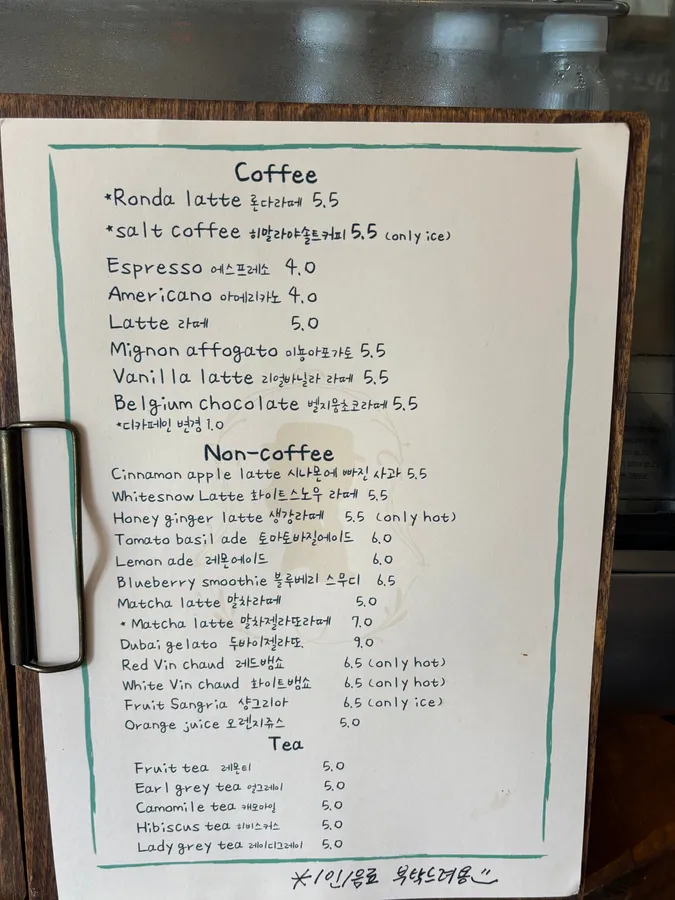 Coffee
*Ronda latte 론다라떼 5.5
*salt coffee 히말라야솔트커피 5.5 (only ice)
Espresso 에스프레소 4.0
Americano 아메리카노 4.0
Latte 라떼 5.0
Mignon affogato 미뇽아포가토 5.5
Vanilla latte 리얼바닐라 라떼 5.5
Belgium chocolate 벨지움초코라떼 5.5
*디카페인 변경 1.0
Non-coffee
Cinnamon apple latte 시나몬에 빠진 사과 5.5
Whitesnow Latte 화이트스노우 라떼 5.5
Honey ginger latte 생강라떼 5.5 (only hot)
Tomato basil ade 토마토바질에이드 6.0
Lemon ade 레몬에이드 6.0
Blueberry smoothie 블루베리 스무디 6.5
Matcha latte 말차라떼 5.0
* Matcha latte 말차젤라또라떼 7.0
Dubai gelato 두바이젤라또. 9.0
Red Vin chaud 레드뱅쇼 6.5 (only hot)
White Vin chaud 화이트뱅쇼 6.5 (only hot)
Fruit Sangria 샹그리아 6.5 (only ice)
Orange juice 오렌지쥬스 5.0
Tea
Fruit tea 레몬티 5.0
Earl grey tea 얼그레이 5.0
Camomile tea 캐모마일 5.0
Hibiscus tea 히비스커스 5.0
Lady grey tea 레이디그레이 5.0
*1인1음료 부탁드려용